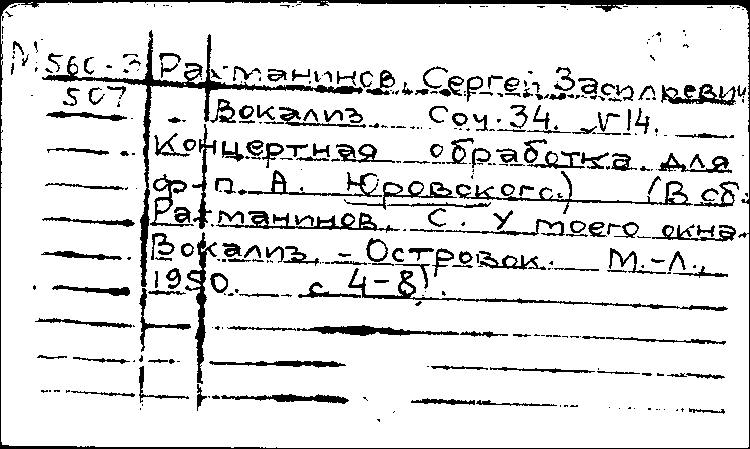 М 560-3 Рахманинов, Сергей Василиевич
507 Вокализ. Соч. 34. №14.
Концертная обработка для
ф-п. А. Юровского.) (В сб.:
Рахманинов, С. У моего окна.
Вокализ. - Островок. М.-Л.,
1950. с 4-8).